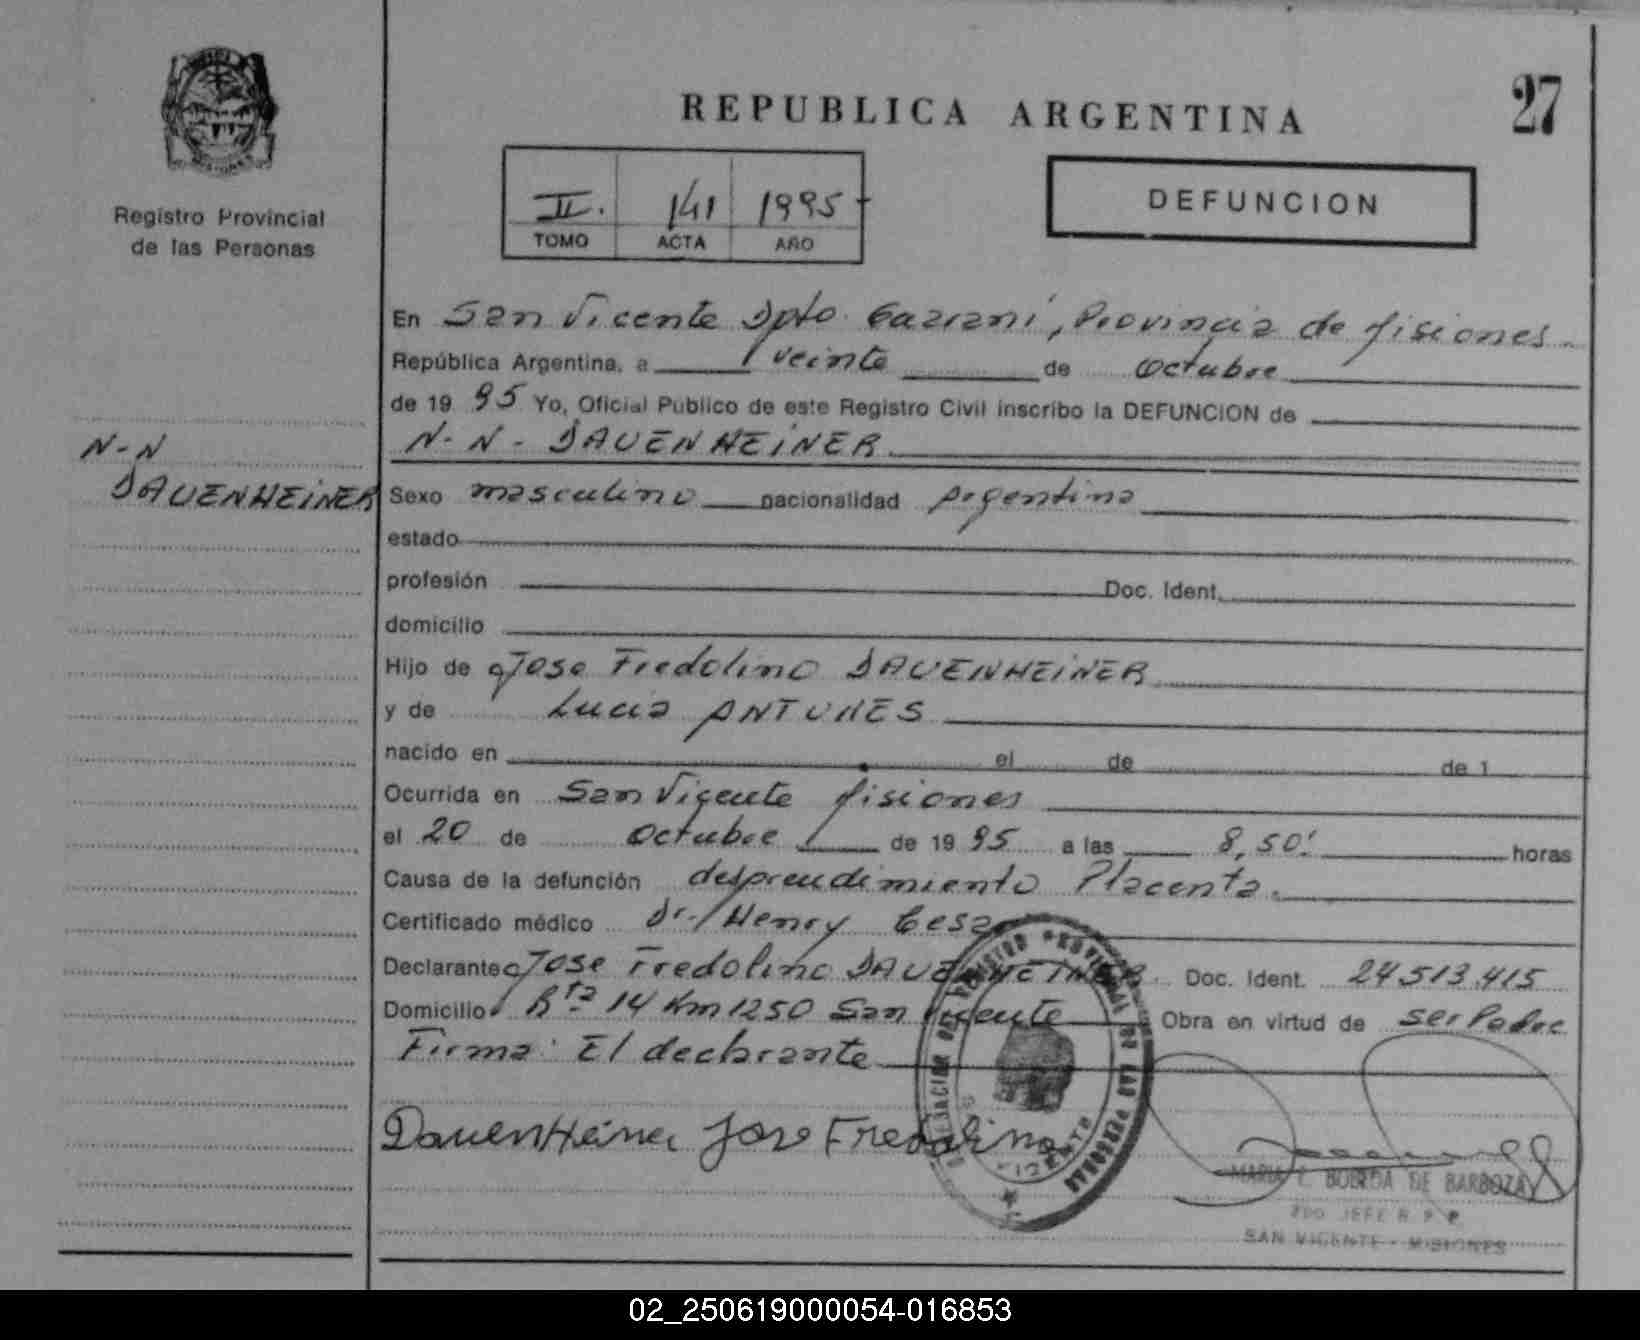 REPUBLICA ARGENTINA
27
Registro Provincial
de las Personas
II. 141 1995
TOMO ACTA AÑO
DEFUNCION
En San Vicente Dpto. Guaraní, Provincia de Misiones.
República Argentina, a veinte de Octubre
de 19 95 Yo, Oficial Público de este Registro Civil inscribo la DEFUNCION de
N-N
DAUENHEINER
N-N- DAUENHEINER
Sexo masculino nacionalidad Argentina
estado
profesión Doc. Ident.
domicilio
Hijo de Jose Fredolino DAUENHEINER
y de Lucia ANTUNES
nacido en el de de 1
Ocurrida en San Vicente Misiones
el 20 de Octubre de 19 95 a las 8,50' horas
Causa de la defunción desprendimiento Placenta.
Certificado médico Dr. Henry
Declarante Jose Fredolino DAUENHEINER Doc. Ident. 24513.415
Domicilio Rta 14 Km 1250 San Vicente Obra en virtud de ser Padre
Firma: El declarante
DauenHeiner Jose Fredolino
DELEGACION DEL REGISTRO PROVINCIAL DE LAS PERSONAS
VICENTE
DE BARBOZA
2DO JEFE R. P. P.
SAN VICENTE - MISIONES
02_250619000054-016853